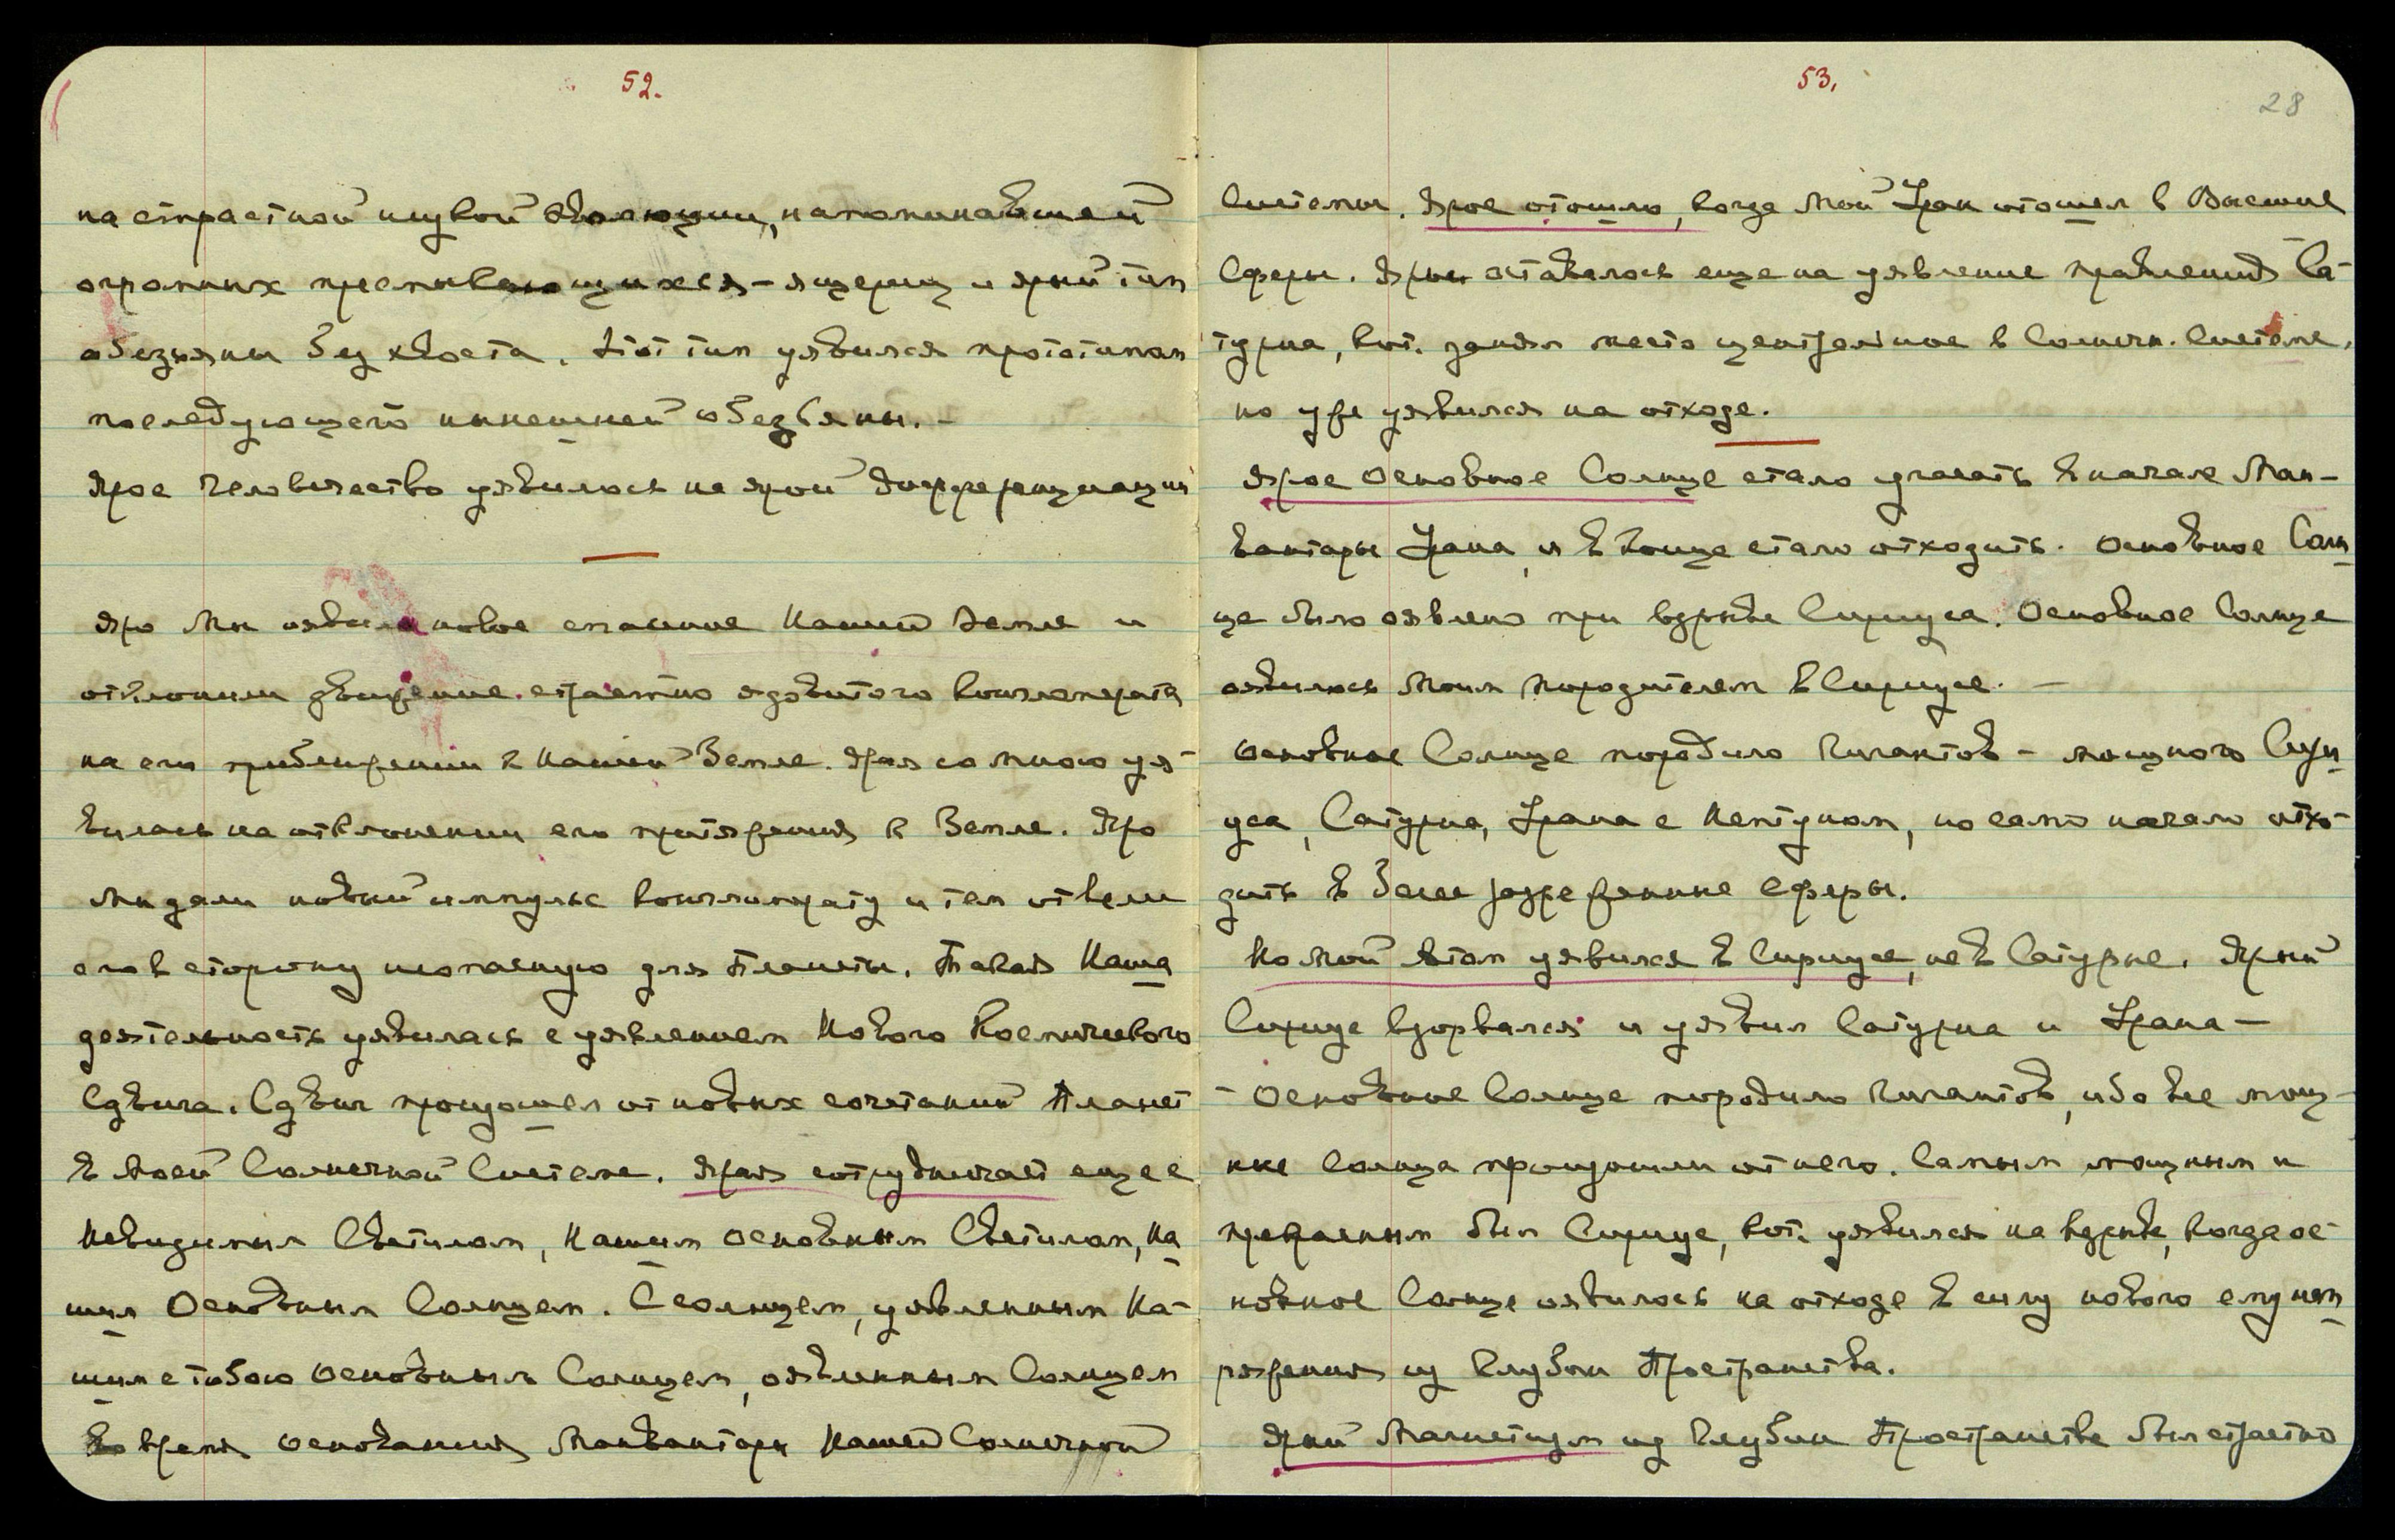 52.
на страстной шувой эволюции, напоминавшей
огромных пресмыкающихся-ящериц и ярый тип
обезьяны без хвоста. Этот тип уявился прототипом
последующего нынешней обезьяны. -
Ярое человечество уявилось на ярой дифференциации
Яро Мы оявили новое спасение Нашей Земле и
отклонили движение страстно ядовитого конгломерата
на его приближении к Нашей Земле. Ярая со Мною уя-
вилась на отклонении его притяжения к Земле. Яро
Мы дали новый импульс конгломерату и тем отвели
его в сторону неопасную для Планеты. Такая Наша
деятельность уявилась с уявлением Нового Космического
Сдвига. Сдвиг произошел от новых сочетаний Планет
в Моей Солнечной Системе. Ярая сотрудничает еще с
Невидимым Светилом, Нашим Основным Светилом, На
шим Основным Солнцем. С Солнцем, уявленным На-
шим с тобою Основным Солнцем, оявленным Солнцем
Во время основания Манвантары Нашей Солнечной
53.
28
Системы. Ярое отошло, когда Мой Уран отошел в Высшие
Сферы. Ярый оставалось еще на уявление правления Са-
турна, кот. занял место центральное в Солнечн. Системе,
но уже уявился на отходе.
Ярое Основное Солнце стало угасать в начале Ман-
вантары Урана, и в конце стало отходить. Основное Солн
це было оявлено при взрыве Сириуса. Основное Солнце
оявилось Моим Породителем в Сириусе. -
Основное Солнце породило Гигантов - мощного Сири
уса, Сатурна, Урана с Нептуном, но само начало отхо-
дить в более разреженные сферы.
Но Мой Атом уявился в Сириусе, не в Сатурне. Ярый
Сириус взорвался и уявил Сатурна и Урана -
- Основное Солнце породило Гигантов, ибо все мощ-
ные Солнца произошли от него. Самым мощным и
прекрасным был Сириус, кот. уявился на взрыве, когда ос-
новное Солнце оявилось на отходе в силу нового ему нап
ряжения из Глубин Пространства.
Ярый Магнетизм из Глубин Пространства был страстно